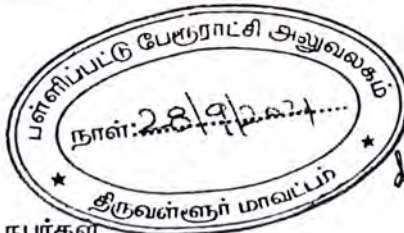 பள்ளிப்பட்டு பேரூராட்சி அலுவலகம்
நாள்: 28/9/2021
★ திருவள்ளூர் மாவட்டம் ★
நபர்கள்